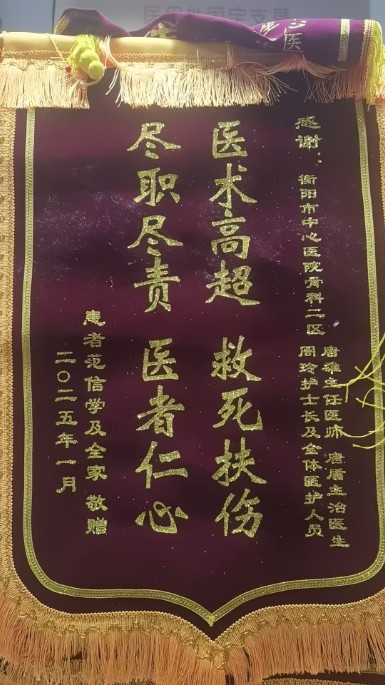 感谢：衡阳市中心医院骨科二区
唐雄主任医师 唐盾主治医生
周玲护士长及全体医护人员
医术高超 救死扶伤
尽职尽责 医者仁心
患者范信学及全家 敬赠
二〇二五年一月